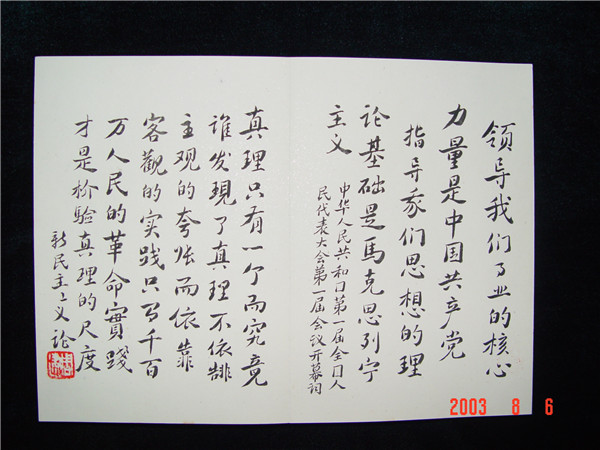 领导我们事业的核心
力量是中国共产党
指导我们思想的理
论基础是馬克思列宁
主义
中华人民共和囗第一届全囗人
民代表大会第一届会议开幕词
真理只有一个而究竟
谁发現了真理不依靠
主观的夸张而依靠
客觀的实践只有千百
万人民的革命實踐
才是检验真理的尺度
新民主主义论
2003 8 6